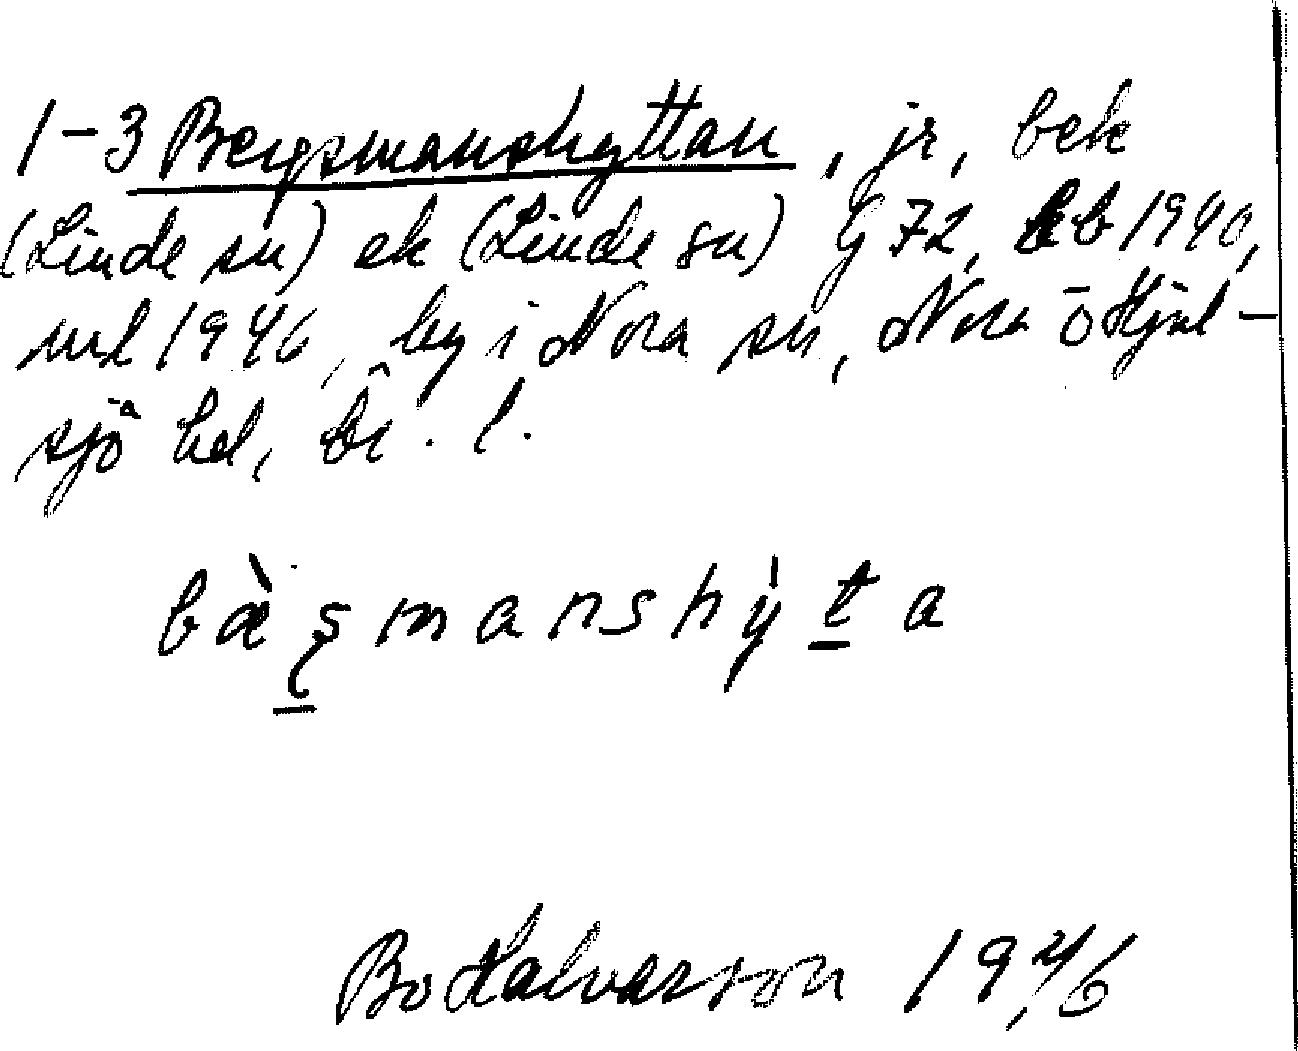 1-3 Bergsmanshyttan, jr, bek
(Linde sn) ek (Linde sn) G 72, kb 1940,
ml 1946, by i Nora sn, Nora ö Hjul-
sjö hd, Ör. l.
bæ̀ʂmanshy̍ṯa
Bo Halvarson 1946